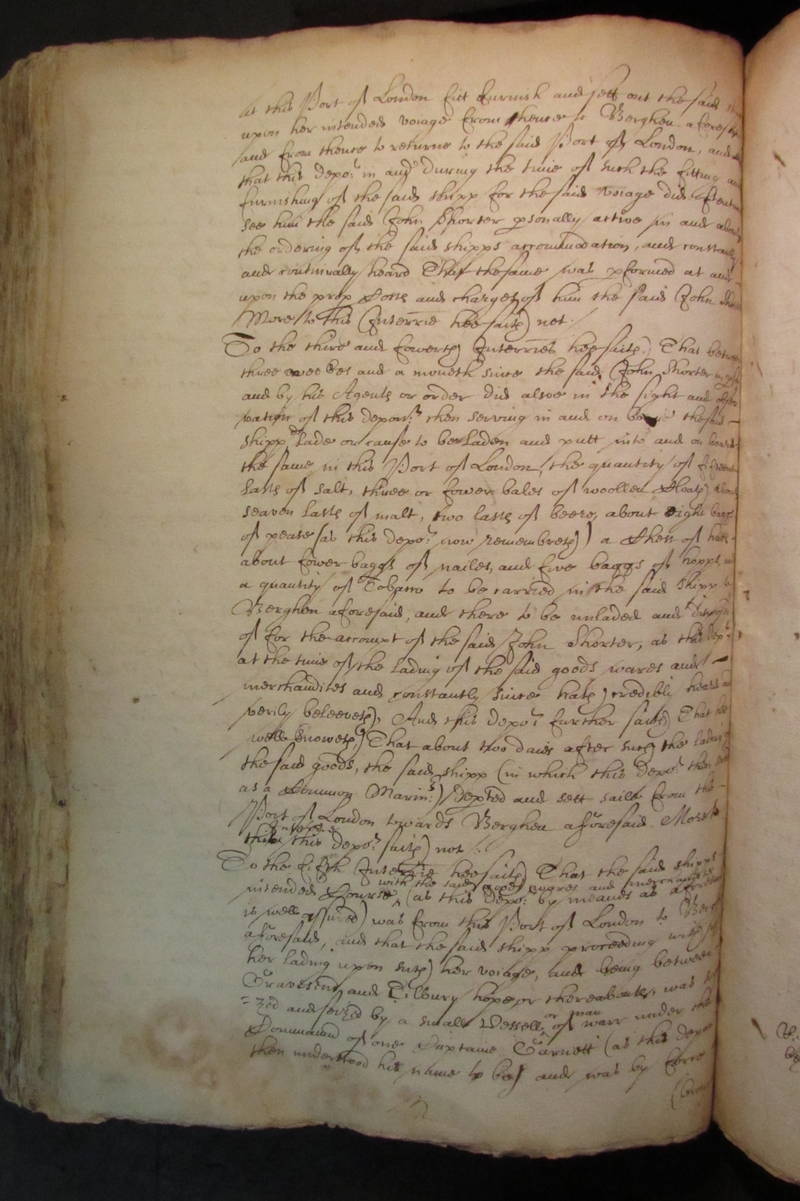 at this Port of London fitt furnish and sett out the said
upon her intended voiage from thence to Berghen aforesaid
and from thence to returne to the said Port of London, and
that this depot in and during the time of such the fitting and
furnishing of the said shipp for the said voiage did often
see him the said John Shorter psonally active in and about
the ordering of the said shipps accommodation, and constantly
and continually heard That the same was pformed at and
upon the prop Costs and charges of him the said John
More to this Interrie hee saith not.
To the third and fowerth Interries hee saith, That betweene
three weekes and a moneth since the said John Shorter
and by his Agents or order did alsoe in the sight and
of this depont then serving in and on the said
shipp Lade or cause to bee Laden and putt into and on board
the same in this Port of London the quantity of
Lasts of salt, three or fower bales of woollen Cloath, about
seaven Lasts of malt, two lasts of beere, about eight
of pease (as this depot now remembreth) a of
about fower baggs of nailes, and five baggs of hopps,
a quantity of Tobacco to be carried in the said shipp to
Berghen aforesaid, and there to be unladed and
of for the accompt of the said John Shorter, as this depot
at the time of the lading of the said goods wares and
merchandizes and constantly since hath credibly heard and
verily beleeveth, And this depot further saith That hee
well knoweth That about two daies after such the lading
the said goods, the said shipp (in which this depot then
as a Common Marinr) depted and sett saile from the
Port of London towards Berghen aforesaid. More to
this this depot saith not.
To the fifth Interrie hee saith That the said shipps
with the said goods wares and merchandizes
intended Course (as this depot by meanes as aforesaid
is well assured) was from this Port of London to Berghen
aforesaid, and that the said shipp proceeding with
her lading upon such her voiage, and being betweene
Gravesend and Tilbury hope or thereabouts, was
=zed and seized by a small Vessell or man of warr under the
Command of one Captaine Garnett (as this depot
then understood his name to be) and was by force